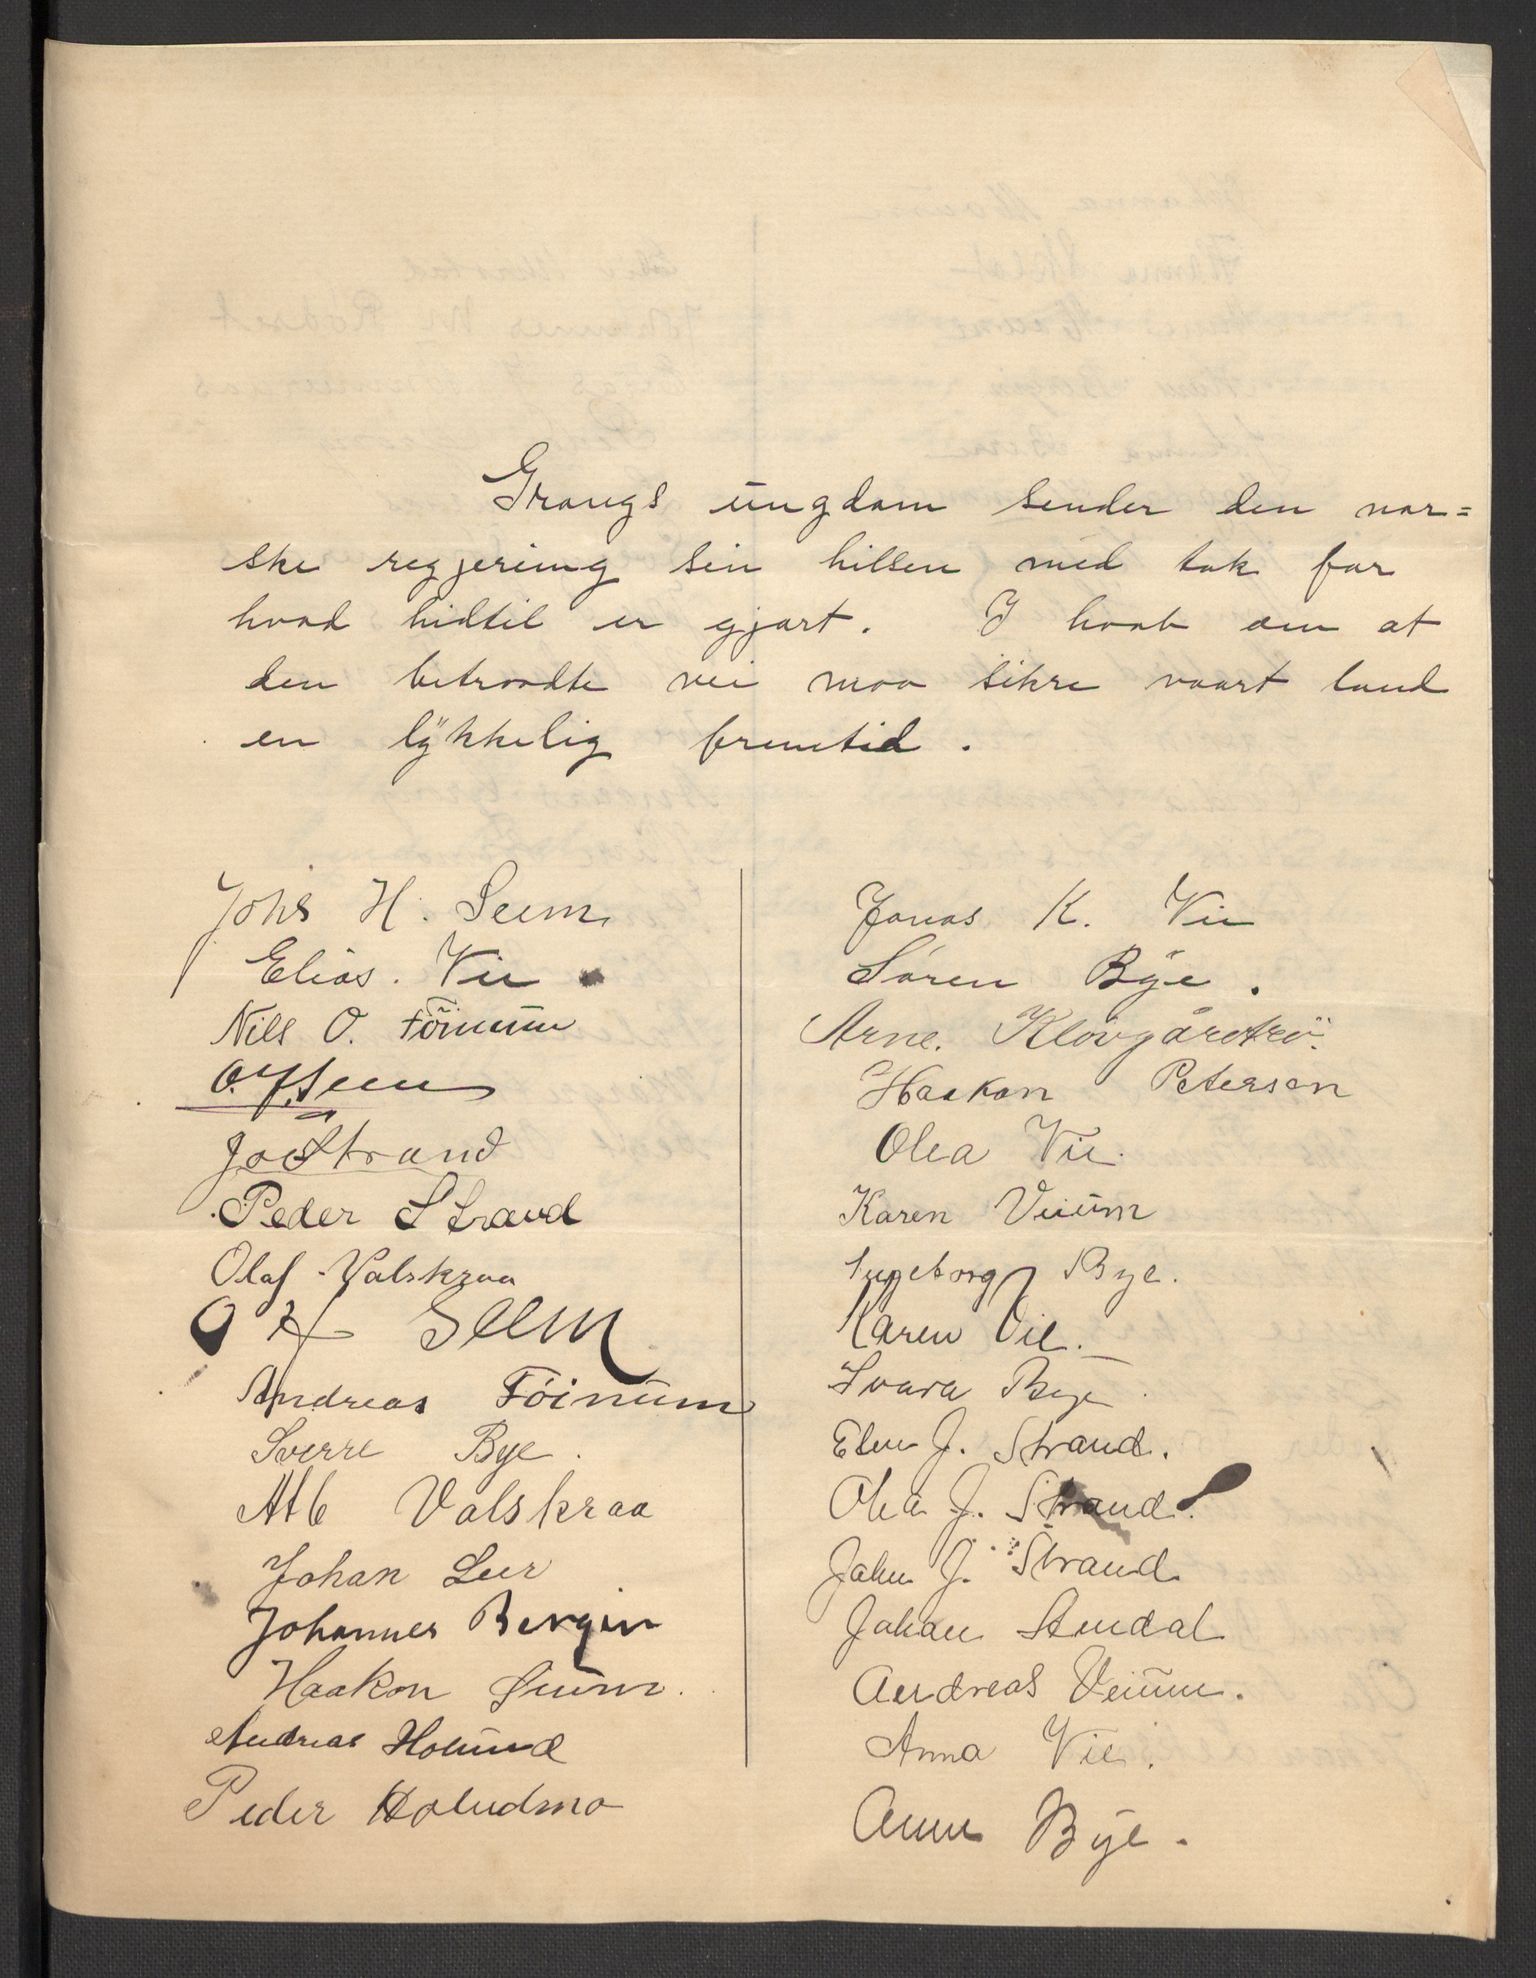 Grongs ungdom sender den nor=
ske regjering sin hilsen med tak for
hvad hidtil er gjort. I haab om at
den betraadte vei maa sikre vaart land
en lykkelig fremtid.
Johs H. Seem
Elias. Vie
Nils O. Föinum
O. J. Seem
Jo Strand
Peder Strand
Olaf Valskraa
O H Seem
Andreas Föinum
Sverre Bye.
Alb Valskraa
Johan Lur
Johannes Bergin
Haakon Seem.
Andreas Homo
Peder Holudmo
Jonas K. Vie
Søren Bye.
Arne. Kløvgårdtrø.
Haakon Petersen
Olea Vie.
Karen Veium
Ingeborg Bye.
Karen Vie.
Svara Bye.
Elen J. Strand.
Olea J. Strand.
John J. Strand
Johan Stendal
Andreas Veium.
Anna Vie.
Anna Bye.